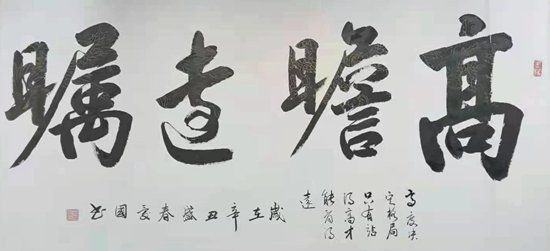 高瞻遠矚
高度决
定格局
只有站
得高才
能看得
遠
歲在辛丑盛春爱國书